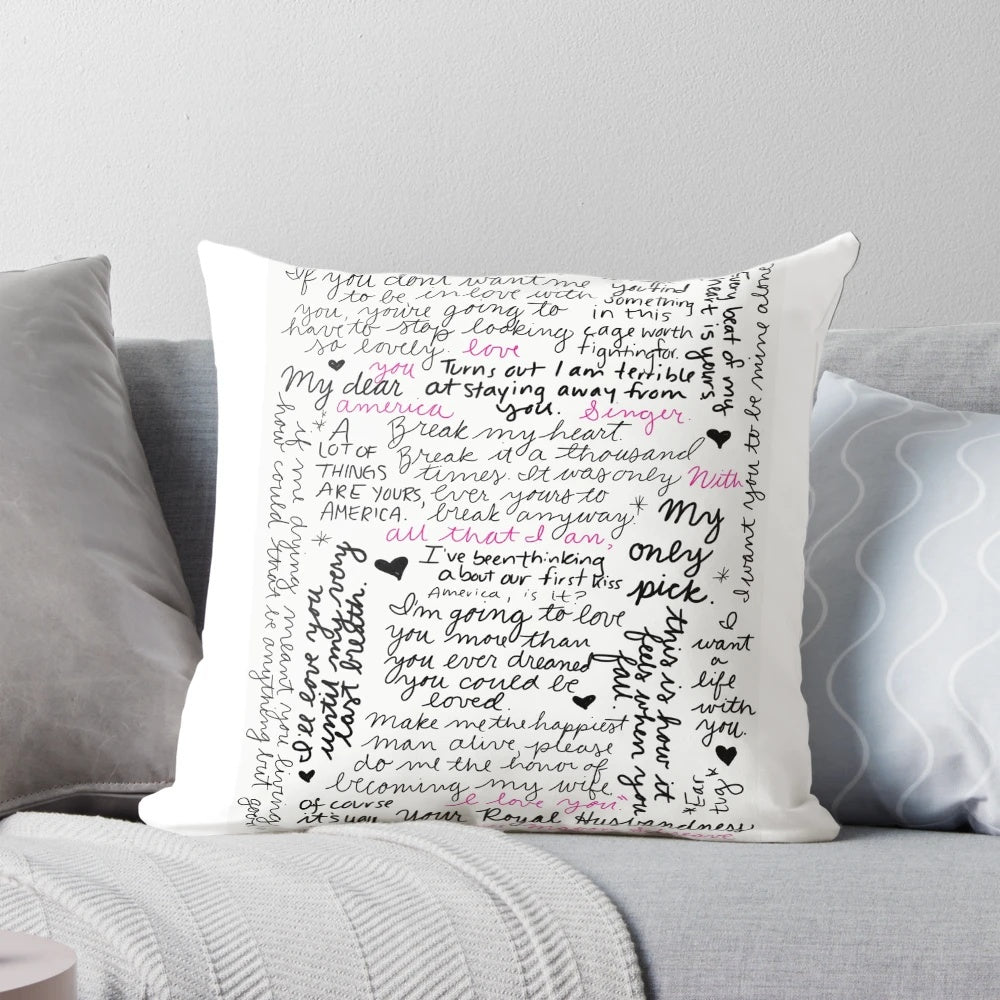 If you dont want me
to be in love with
you, you're going to
have to stop looking
so lovely.
you find
something
in this
cage worth
fighting for.
Every beat of my
heart is yours
I want you to be mine alone
love
you
Turns out I am terrible
at staying away from
you.
My dear
america
Singer.
*A
LOT OF
THINGS
ARE YOURS,
AMERICA.
Break my heart.
Break it a thousand
times. It was only
ever yours to
break anyway.*
With
all that I am,
My
only
pick.
*
*
I've been thinking
about our first kiss
America, is it?
I'm going to love
you more than
you ever dreamed
you could be
loved.
this is how it
feels when you
fall.
I
want
a
life
with
you.
if me dying meant you living
how could that be anything but good
I'll love you
until my very
last breath.
Make me the happiest
man alive, please
do me the honor of
becoming my wife.
*Ear
tug*
I love you"
of course
it's you
Your Royal Husbandness